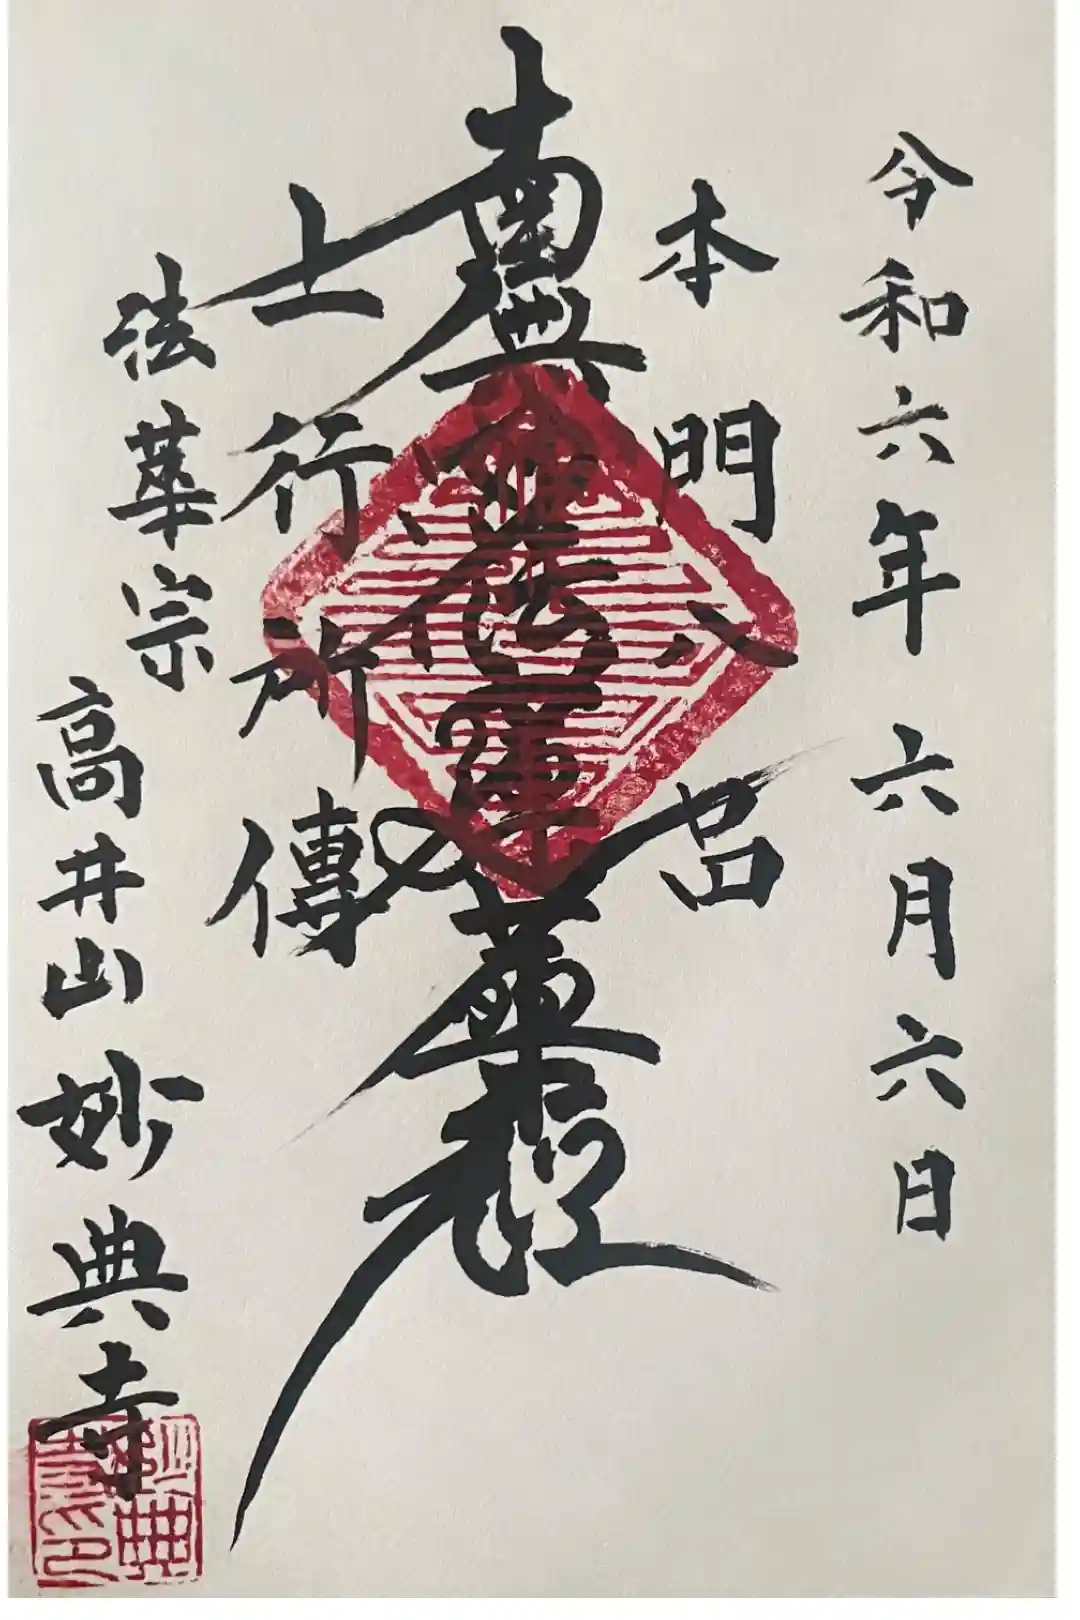 令和六年六月六日
本門八品
南無妙法蓮華経
上行所傳
法華宗
高井山妙典寺